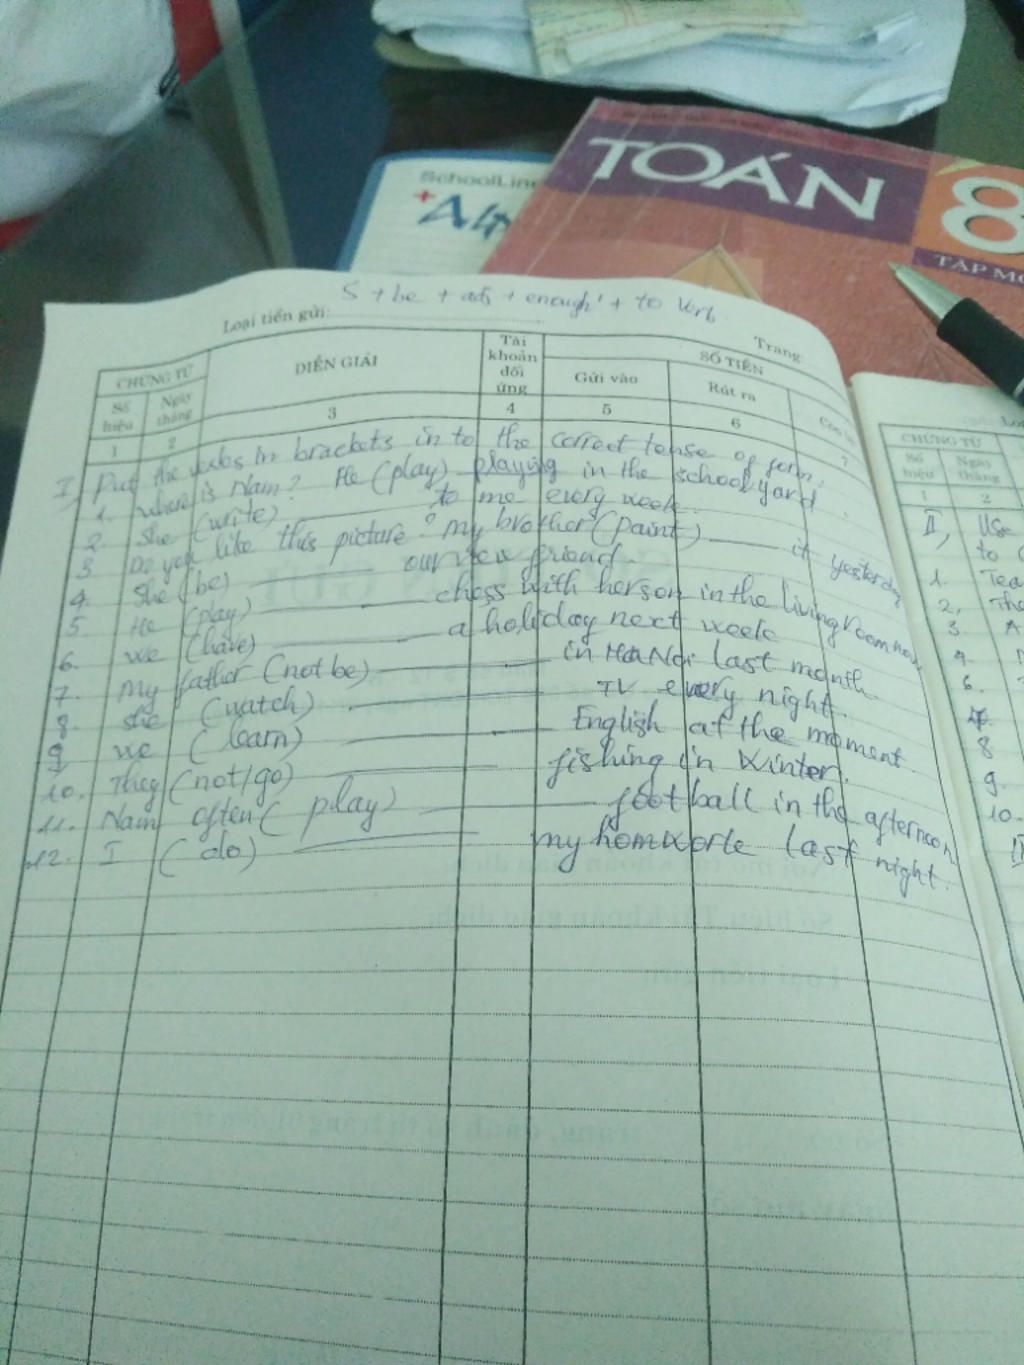 TOÁN
8
TẬP MỘ
SchoolLine
S + be + adj + enough + to Verb
Loại tiền gửi:
Trang:
CHỨNG TỪ
Số hiệu
Ngày tháng
DIỄN GIẢI
Tài khoản đối ứng
SỐ TIỀN
Gửi vào
Rút ra
1 2 3 4 5 6 7
I, Put the verbs in brackets in to the correct tense of form.
1. where is Nam? He (play) playing in the schoolyard
2. She (write) to me every week.
3 Do you like this picture? my brother (paint) it yesterday
4. She (be) our new friend.
5 He (play) chess with herson in the living room now
6. we (have) a holiday next week
7. My father (not be) in Ha Noi last month
8. she (watch) TV every night.
9 we (learn) English at the moment
10. They (not/go) fishing in Winter.
11. Nam often (play) football in the afternoon
12. I (do) my homworte last night.
CHỨNG TỪ
Số hiệu
Ngày tháng
1 2
II, Use
to
1. Tea
2, The
3. A
4.
6.
7.
8
9.
10.